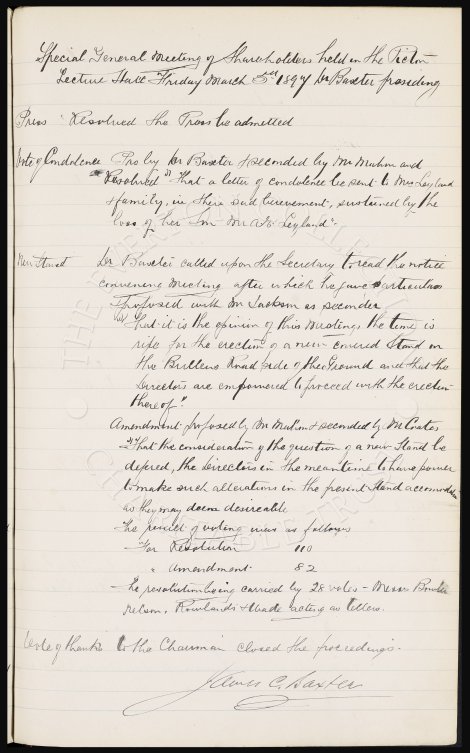 Special General Meeting of Shareholders held in the Picton
Lecture Hall Friday March 5th 1897 Dr Baxter presiding
Press Resolved the Press be admitted
Vote of Condolence Pro by Dr Baxter & seconded by Mr Mahon and
Resolved "That a letter of condolence be sent to Mrs Leyland
& family, in there sad bereavement, sustained by the
loss of her Son Mr A. Leyland"
New Stand Dr Baxter called upon the Secretary to read the notice
convening Meeting after which he gave particulars
& proposed with Mr Jackson as seconder
"That it is the opinion of this Meeting the time is
ripe for the erection of a new covered Stand on
the Bullens Road side of the Ground and that the
Directors are empowered to proceed with the erection
thereof"
Amendment proposed by Mr Mahon & seconded by Mr Coates
"That the consideration of the question of a new Stand be
defered, the Directors in the meantime to have power
to make such alterations in the present Stand accomodation
as they may deem desireable
The result of voting was as follows
For Resolution 110
" Amendment 82
The resolution being carried by 28 votes - Messrs
Nelson, Rowlands & Wade acting as tellers.
Vote of thanks to the Chairman closed the proceedings.
James C. Baxter